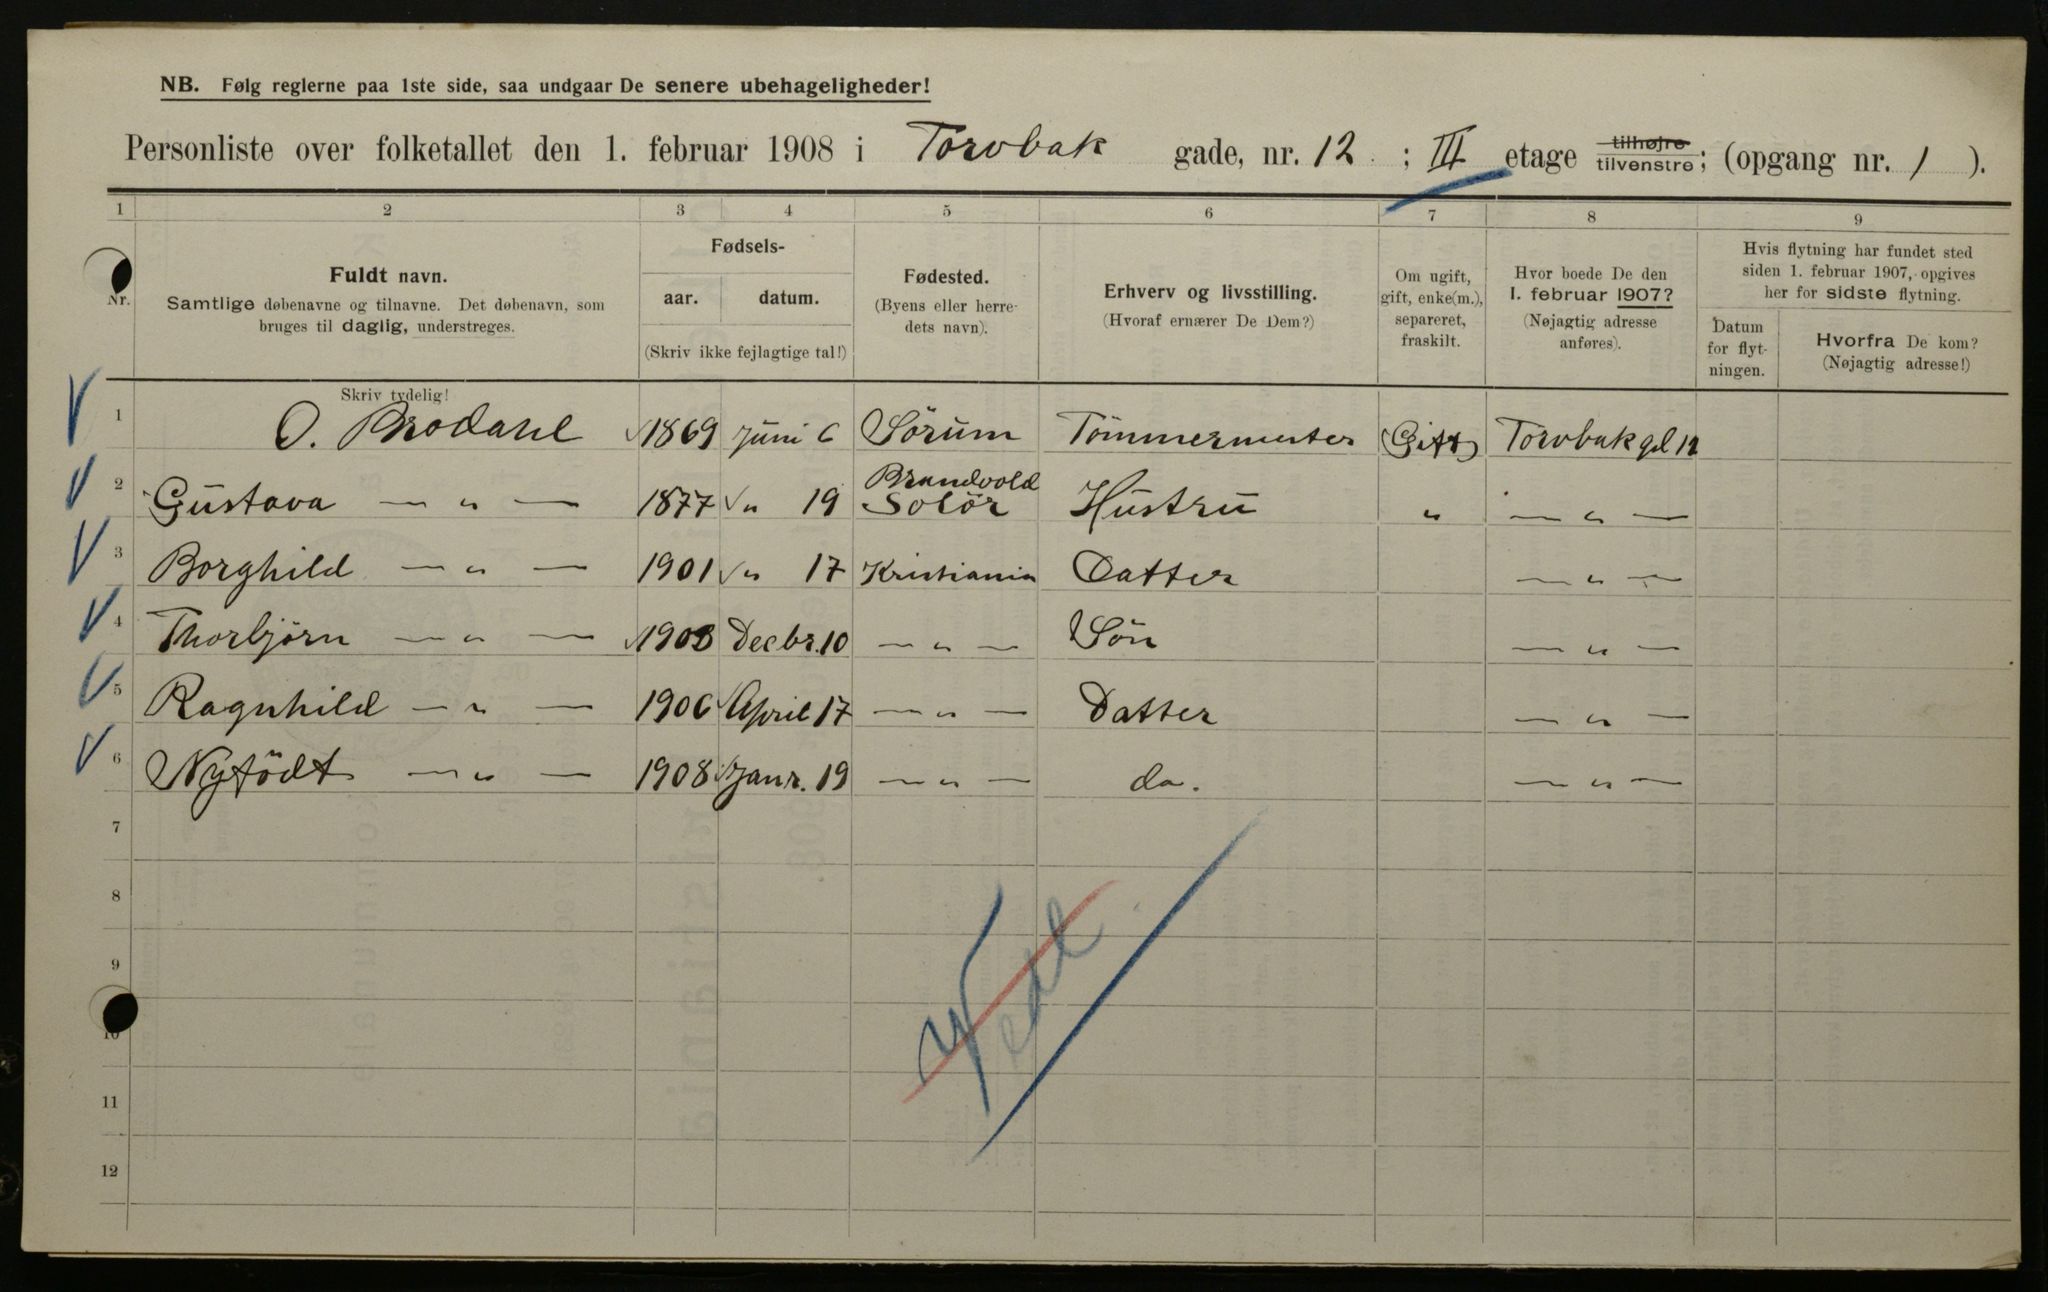 NB. Følg reglerne paa 1ste side, saa undgaar De senere ubehageligheder!
Personliste over folketallet den 1. februar 1908 i Torvbak gade, nr. 12 ; III etage tilhøjre tilvenstre; (opgang nr. 1 ).
1 2 3 4 5 6 7 8 9
Nr.
Fuldt navn.
Samtlige døbenavne og tilnavne. Det døbenavn, som
bruges til daglig, understreges.
Fødsels-
aar. datum.
(Skriv ikke fejlagtige tal!)
Fødested.
(Byens eller herre-
dets navn).
Erhverv og livsstilling.
(Hvoraf ernærer De Dem?)
Om ugift,
gift, enke(m.),
separeret,
fraskilt.
Hvor boede De den
1. februar 1907?
(Nøjagtig adresse
anføres).
Hvis flytning har fundet sted
siden 1. februar 1907, opgives
her for sidste flytning.
Datum
for flyt-
ningen.
Hvorfra De kom?
(Nøjagtig adresse!)
Skriv tydelig!
1 O. Brodahl 1869 Juni 6 Sørum Tömmermester Gift Torvbakgd 12
2 Gustava — " — 1877 " 19 Brandvold Solör Hustru " — " —
3 Borghild — " — 1901 " 17 Kristiania Datter — " —
4 Thorbjörn — " — 1903 Decbr. 10 — " — Sön — " —
5 Ragnhild — " — 1906 April 17 — " — Datter — " —
6 Nyfödt — " — 1908 Janr. 19 — " — do. — " —
7
8
9
10
11
12